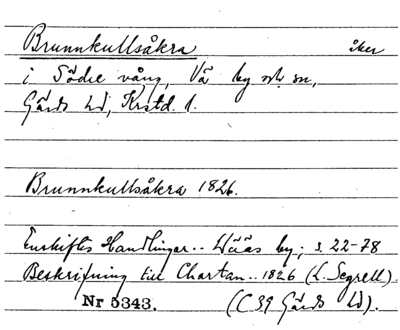 Brunnkullsåkra åker
i Södre vång, Vä by och sn,
Gärds hd, Krstd. l.
Brunnkullsåkra 1826.
Enskiftes Handlingar.. Wääs by; s. 22-78
Beskrifning till Chartan.. 1826 (L. Segrell).
Nr 5343. (C 39 Gärds hd).